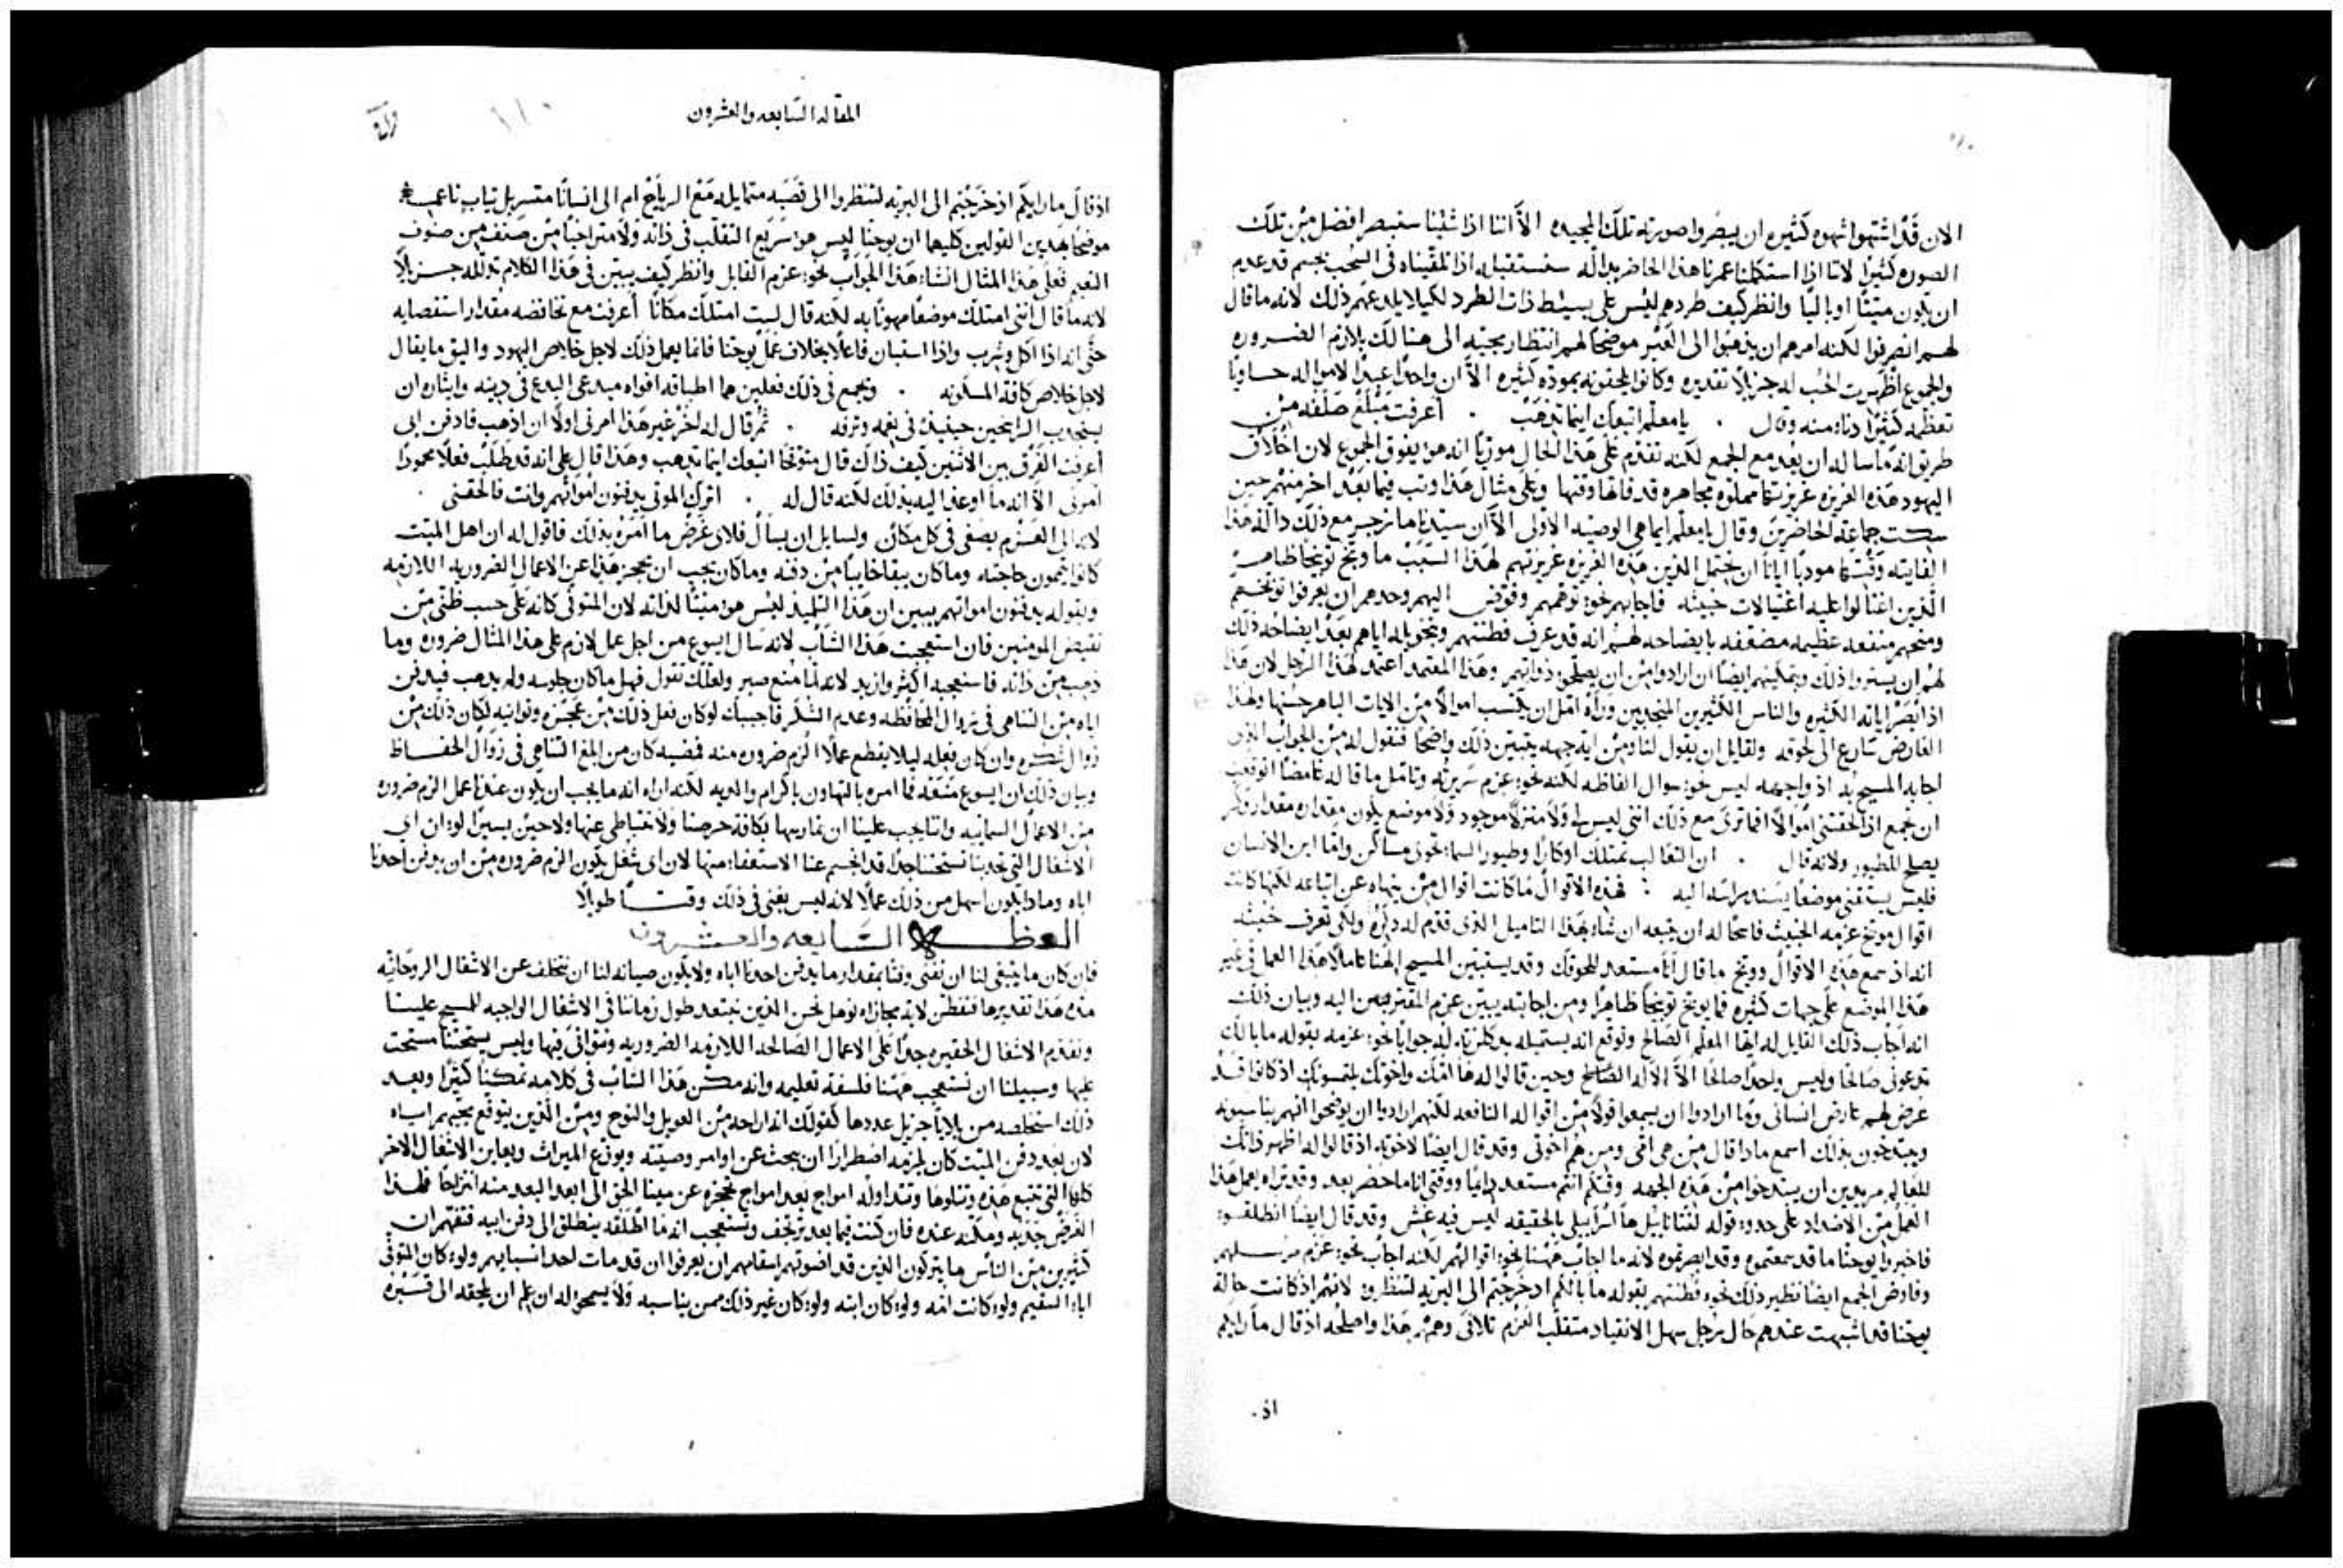 الان قد اشتهوا شهوه كثيره ان يبصروا صورته تلك المجيده الا اننا اذا شئنا سنبصر افضل من تلك
الصوره كثيرا لاننا اذا استكملنا عمرنا هذا الحاضر بدالة سنستقبله اذا تلقيناه في السحب بجسم قد عدم
ان يكون ميتا او باليا وانظر كيف طردهم ليس على بسيط ذات الطرد لكيلا يلدعهم ذلك لانه ما قال
لهم انصرفوا لكنه امرهم ان يذهبوا الى العبر موضحا لهم انتظار مجيه الى هنالك بلازم الضروره
والجموع اظهرت الحب له جزيلا تقديره وكانوا يلحقونه بموده كثيره الا ان واحدا عبدا لاموال حاويا
تعظمه كثيرا دنا منه وقال . يا معلم اتبعك اينما تذهب . اعرفت مبلغ صلفه من
طريق انه ما سال ان يعد مع الجمع لكنه تقدم على هذا الحال موريا انه هو يفوق الجموع لان اخلاق
اليهود هذه الغريزه غريزتها مملوه مجاهره قد فاتها وقتها وعلى مثال هذا وثب فيما بعد اخر منهم حين
سكت جماعة الحاضرين وقال يا معلم ايما هي الوصيه الاولى الا ان سيدنا ما زجر مع ذلك دالة هذا
الفايته وقتها مودبا ايانا ان نحتمل الذين هذه الغريزه غريزتهم لهذا السبب ما وبخ توبيخا ظاهرا
الذين اغتالوا عليه اغتيالات خبيثه فاجابهم نحو توهمهم وفوض اليهم وحدهم ان يعرفوا توبخهم
ومنحهم منفعه عظيمه مضعفه بايضاحه لهم انه قد عرف فطنتهم وبتخويله اياهم بعد ايضاحه ذلك
لهم ان يستروا ذلك وبتمكينهم ايضا ان ارادوا من ان يصلحوا ذواتهم وهذا المعتمد اعتمد لهذا الرجل لان هذا
اذ ابصر اياته الكثيره والناس الكثيرين المنجدبين وراه امل ان يكتسب اموالا من الايات الباهر حسنها ولهذا
الغارض سارع الى لحوقه ولقايل ان يقول لنا ومن اية جهه يتبين ذلك واضحا فنقول له من الجواب الذي
اجابه المسيح به اذ واجهه ليس نحو سوال الفاظه لكنه نحو عزم سريرته وتامل ما قاله غامضا اتوقعت
ان تجمع اذ لحقتني اموالا افما ترى مع ذلك انني ليس لي ولا منزل موجود ولا موضع يكون مقداره مقدار وكر
يصلح للطيور ولانه قال . ان الثعالب تمتلك اوكارا وطيور السما تحوي مساكن واما ابن الانسان
فليس يقتني موضعا يسند راسه اليه : فهذه الاقوال ما كانت اقوال من ينهاه عن اتباعه لكنها كانت
اقوال موبخ عزمه الخبيث فاسحا له ان يتبعه ان شا بهذا التاميل الذي قدم له ذكره ولكي تعرف خبثه
انه اذ سمع هذه الاقوال ووبخ ما قال انا مستعد للحوقك وقد يستبين المسيح الهنا عاملا هذا العمل في غير
هذا الموضع على جهات كثيره فما يوبخ توبيخا ظاهرا ومن اجابته يبين عزم المقتربين اليه وبيان ذلك
انه اجاب ذلك القايل له ايها المعلم الصالح وتوقع انه يستميله بمكرمته له جوابا نحو عزمه بقوله ما بالك
تدعوني صالحا وليس واحدا صالحا الا الاله الصالح وحين قالوا له ها امك واخوتك يلتمسونك اذ كانوا قد
عرض لهم عارض انساني وما ارادوا ان يسمعوا قولا من اقواله النافعه لكنهم ارادوا ان يوضحوا انهم يناسبونه
ويتبدخون بذلك اسمع ماذا قال من هي امي ومن هم اخوتي وقد قال ايضا لاخوته اذ قالوا له اظهر ذاتك
للعالم مريدين ان يتبدخوا من هذه الجهه وقتكم انتم مستعد دايما ووقتي انا ما حضر بعد وقد تراه يعمل هذا
العمل من الاضداد على حدوه قوله لنتانايل ها اسراييلي بالحقيقه ليس فيه غش وقد قال ايضا انطلقوا
فاخبروا يوحنا ما قد سمعتموه وقد ابصرتموه لانه ما اجاب ههنا نحو اقوالهم لكنه اجاب نحو عزم مرسلهم
وفاوض الجمع ايضا نظير ذلك نحو فطنتهم بقوله ما بالكم اذ خرجتم الى البريه لتنظروا لانهم اذ كانت حالة
يوحنا قد اشبهت عندهم حال رجل سهل الانقياد متقلب العزم تلافى وهمهم هذا واصلحه اذ قال ما رايكم
اذ .
المقاله السابعه والعشرون
١١٠
اذ قال ما رايكم اذ خرجتم الى البريه لتنظروا الى قصبه متمايله مع الرياح ام الى انسانا متسربل ثياب ناعمه
موضحا بهذين القولين كليهما ان يوحنا ليس هو سريع التقلب في ذاته ولا متراخيا من صنف من صنوف
النعيم فعلى هذا المثال انشا هذا الجواب نحو عزم القايل وانظر كيف يبين في هذا الكلام تذلله جزيلا
لانه ما قال انني امتلك موضعا مهوانا به لكنه قال لست امتلك مكانا اعرفت مع تحافضه مقدار استقصايه
حتى انه اذا اكل وشرب واذا استبان فاعلا بخلاف عمل يوحنا فانما يعمل ذلك لاجل خلاص اليهود واليق ما يقال
لاجل خلاص كافة المسكونه . ويجمع في ذلك فعلين هما اطباقه افواه مبدعي البدع في دينه وايثاره ان
يجدب الرابحين حينيذ في نعمه وترفه . ثم قال له اخر غير هذا امرني اولا ان اذهب فادفن ابي
اعرفت الفرق بين الاثنين كيف ذاك قال متوقحا اتبعك اينما تذهب وهذا قال على انه قد طلب فعلا محمودا
امرني الا انه ما اوعز اليه بذلك لكنه قال له . اترك الموتى يدفنون امواتهم وانت فالحقني .
لانه الى العزم يصغي في كل مكان ولسايل ان يسال فلاي غرض ما امره بذلك فاقول له ان اهل الميت
كانوا يتممون حاجته وما كان يبقا خايبا من دفنه وما كان يجب ان يحجز هذا عن الاعمال الضروريه اللازمه
وبقوله يدفنون امواتهم يبين ان هذا التلميذ ليس هو ميتا لذاته لان المتوفى كانه على حسب ظني من
نقيض المومنين فان استعجبت هذا الشاب لانه سال ايسوع من اجل عمل لازم على هذا المثال ضروره وما
ذهب من ذاته فاستعجبه اكثر وازيد لانه لما منع صبر ولعلك تقول فهل ما كان جلوسه ولم يذهب فيدفن
اباه من التناهي في زوال المحافظه وعدم الشكر فاجيبك لو كان فعل ذلك من عجزه وتوانيه لكان ذلك من
زوال شكره وان كان فعله ليلا يقطع عملا الزم ضروره منه فمضيه كان من ابلغ التناهي في زوال الحفاظ
وبيان ذلك ان ايسوع منعه فما امره بالتهاون باكرام والديه لكنه اراه انه ما يجب ان يكون عندنا عمل الزم ضروره
من الاعمال السمايه واننا يجب علينا ان نمارسها بكافة حرصنا ولا نتباطى عنها ولا حين يسيرا لو ان اي
الاشغال التي تجدبنا تستحثنا جدا قد انحسم عنا الاستعفا منها لان اي شغل يكون الزم ضروره من ان يدفن احدنا
اباه وماذا يكون اسهل من ذلك عملا لانه ليس يفني في ذلك وقتا طويلا
العظه السابعه والعشرون
فان كان ما ينبغي لنا ان نفني وقتا بمقدار ما يدفن احدنا اباه ولا يكون صيانه لنا ان نتخلف عن الاشغال الروحانيه
مدة هذا تقديرها فتفطن لاية مجازاه نوهل نحن الذين نبتعد طول زماننا في الاشغال الواجبه للمسيح علينا
ونقدم الاشغال الحقيره جدا على الاعمال الصالحه اللازمه الضروريه ونتوانى فيها وليس يستحثنا مستحث
عليها وسبيلنا ان نستعجب ههنا فلسفة تعليمه وانه مكن هذا الشاب في كلامه تمكينا كثيرا وبعد
ذلك استخلصه من بلايا جزيل عددها كقولك انه اراحه من العويل والنوح ومن الذين يتوقع مجيهم اياه
لان بعد دفن الميت كان يلزمه اضطرارا ان يبحث عن اوامر وصيته ويوزع الميراث ويعاين الاشغال الاخر
كلها التي تتبع هذه وتتلوها وتتداوله امواج بعد امواج تحجزه عن مينا الحق الى ابعد البعد منه انتزاحا فلهذا
الغرض جذبه ومكنه عنده فان كنت فيما بعد ترتجف وتستعجب انه ما اطلقه ينطلق الى دفن ابيه فتفهم ان
كثيرين من الناس ما يتركون الذين قد اضوتهم اسقامهم ان يعرفوا ان قد مات احد انسبايهم ولو كان المتوفى
ابا السقيم ولو كانت امه ولو كان ابنه ولو كان غير ذلك ممن يناسبه ولا يسمحوا له ان علم ان يلحقه الى قبره